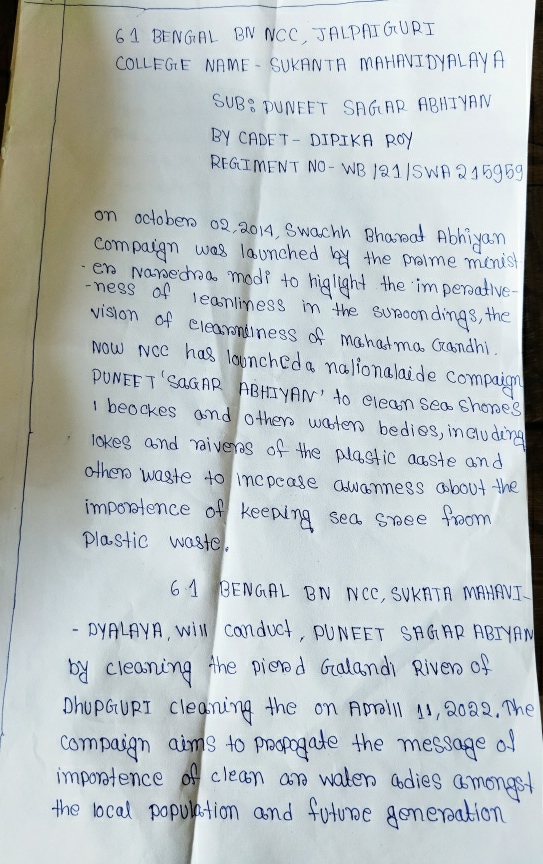 61 BENGAL BN NCC, JALPAIGURI
COLLEGE NAME - SUKANTA MAHAVIDYALAYA
SUB: PUNEET SAGAR ABHIYAN
BY CADET - DIPIKA ROY
REGIMENT NO - WB/21/SWA 215959
on october 02,2014, Swachh Bharat Abhiyan
Campaign was launched by the prime minist
-er Naredra modi to higlight the imperative-
-ness of leanliness in the suroondings, the
vision of cleannilness of Mahatma Gandhi.
NOW NCC has launched a nalionalaide Campaign
PUNEET 'SAGAR ABHIYAN' to clean sea shores
, beockes and other water bedies, including
lokes and raivers of the plastic aaste and
other waste to incpcase awanness about the
importence of keeping sea sree from
plastic waste.
61 BENGAL BN NCC, SUKATA MAHAVI-
- DYALAYA, will conduct, PUNEET SAGAR ABIYAN
by cleaning the pierd Galandi River of
DHUPGURI cleaning the on Aprill 11, 2022. The
campaign aims to propogate the message of
importence of clean an water adies amongst
the local population and future generation